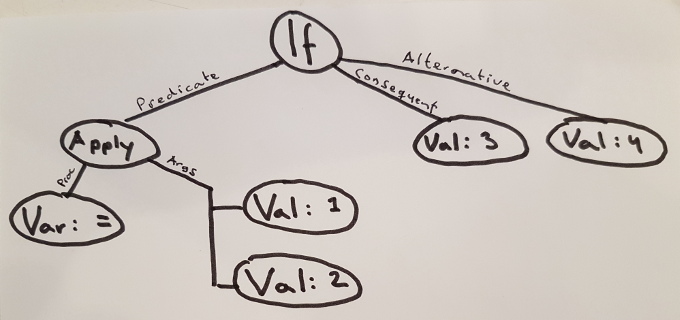 If
Predicate
Consequent
Alternative
Apply
Val: 3
Val: 4
Proc
Args
Var: =
Val: 1
Val: 2